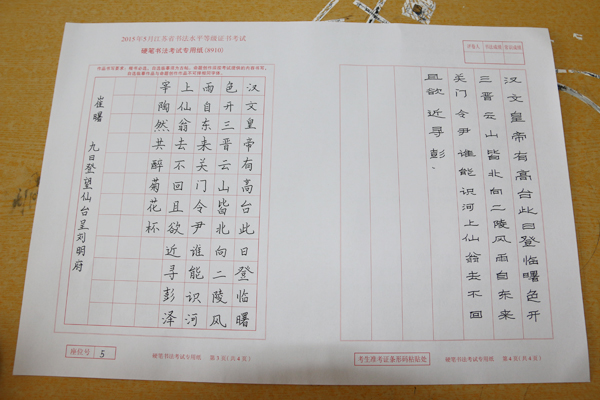 2015年5月江苏省书法水平等级证书考试
硬笔书法考试专用纸(8910)
汉文皇帝有高台此日登临曙
色开三晋云山皆北向二陵风
雨自东来关门令尹谁能识河
上仙翁去不回且欲近寻彭泽
宰陶然共醉菊花杯
崔曙 九日登望仙台呈刘明府
座位号 5
硬笔书法考试专用纸 第3页(共4页)
汉文皇帝有高台此日登临曙色开
三晋云山皆北向二陵风雨自东来
关门令尹谁能识河上仙翁去不回
且欲近寻彭、
考生准考证条形码粘贴处
硬笔书法考试专用纸 第4页(共4页)